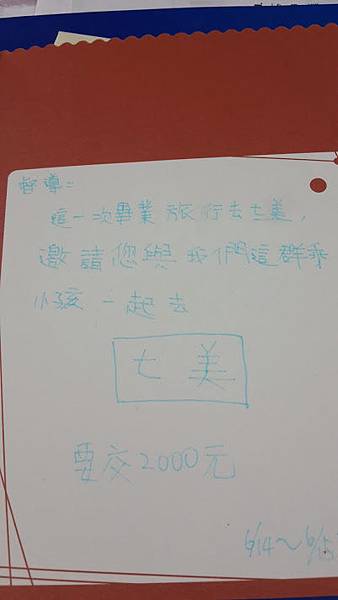 督導：
這一次畢業旅行去七美，
邀請您與我們這群乖
小孩一起去
七美
要交2000元
6/14～6/15